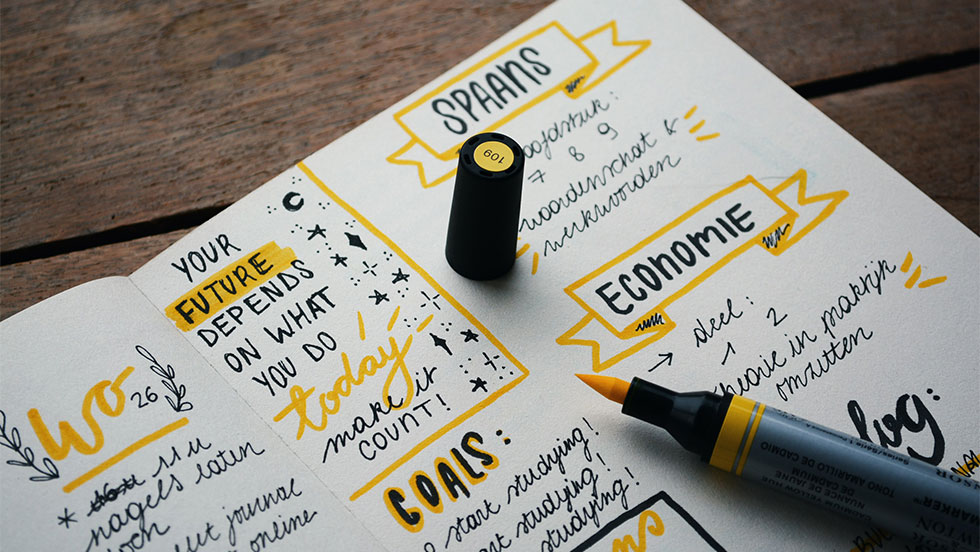 SPAANS
hoofdstuk:
7 8 9
woordenschat &
werkwoorden
ECONOMIE
deel:
→ 1 2
theorie in praktijk
omzetten
YOUR
FUTURE
DEPENDS
ON WHAT
YOU DO
today
make it
COUNT!
GOALS:
start studying!
start studying!
studying!
Wo
26
* 11 u
nagels laten
journal
online
log:
109
CADMIUM YELLOW HUE
NUANCE DE JAUNE
DE CADMIUM
TONO AMARILLO DE CADMIO
MARKER